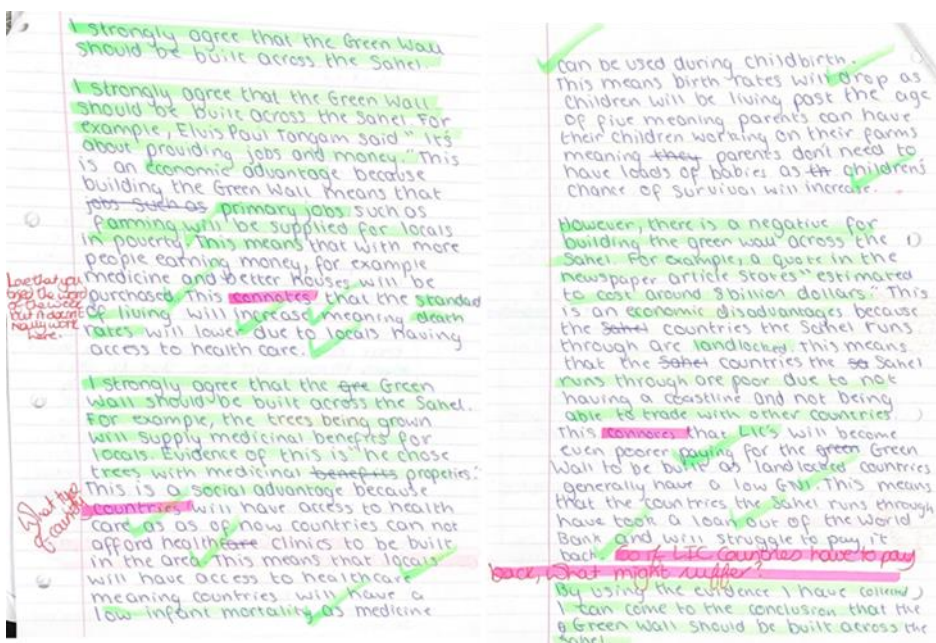 I strongly agree that the Green Wall
should be built across the Sahel.
I strongly agree that the Green Wall
should be built across the Sahel. For
example, Elvis Paul Tangam said " It's
about providing jobs and money." This
is an economic advantage because
building the Green Wall means that
jobs such as primary jobs such as
farming will be supplied for locals
in poverty. This means that with more
people earning money, for example
medicine and better houses will be
purchased. This connotes that the standad
of living will increase meaning death
rates will lower due to locals having
access to health care.
Love that you
used the word
of the week
but it doesn't
really work
here.
I strongly agree that the Gre Green
Wall should be built across the Sahel.
For example, the trees being grown
will supply medicinal benefits for
locals. Evidence of this is "he chose
trees with medicinal benefits propeties."
This is a social advantage because
countries will have access to health
care as as of now countries can not
afford healthcare clinics to be built
in the area. This means that locals
will have access to healthcare
meaning countries will have a
low infant mortality as medicine
What type
of country
can be used during childbirth.
This means birth rates will drop as
children will be living past the age
of five meaning parents can have
their children working on their farms
meaning they parents don't need to
have loads of babies as th children's
chance of survival will increase.
However, there is a negative for
building the green wall across the
Sahel. For example, a quote in the
newspaper article states " estimated
to cost around 8 billion dollars." This
is an economic disadvantages because
the Sahel countries the Sahel runs
through are landlocked. This means
that the Sahel countries the sa Sahel
runs through are poor due to not
having a coastline and not being
able to trade with other countries.
This connotes that LIC's will become
even poorer paying for the green Green
Wall to be built as landlocked countries
generally have a low GNI. This means
that the countries the Sahel runs through
have took a loan out of the World
Bank and will struggle to pay it
back. So if LIC countries have to pay
back, what might suffer?
By using the evidence I have collected
I can come to the conclusion that the
Green Wall should be built across the
Sahel